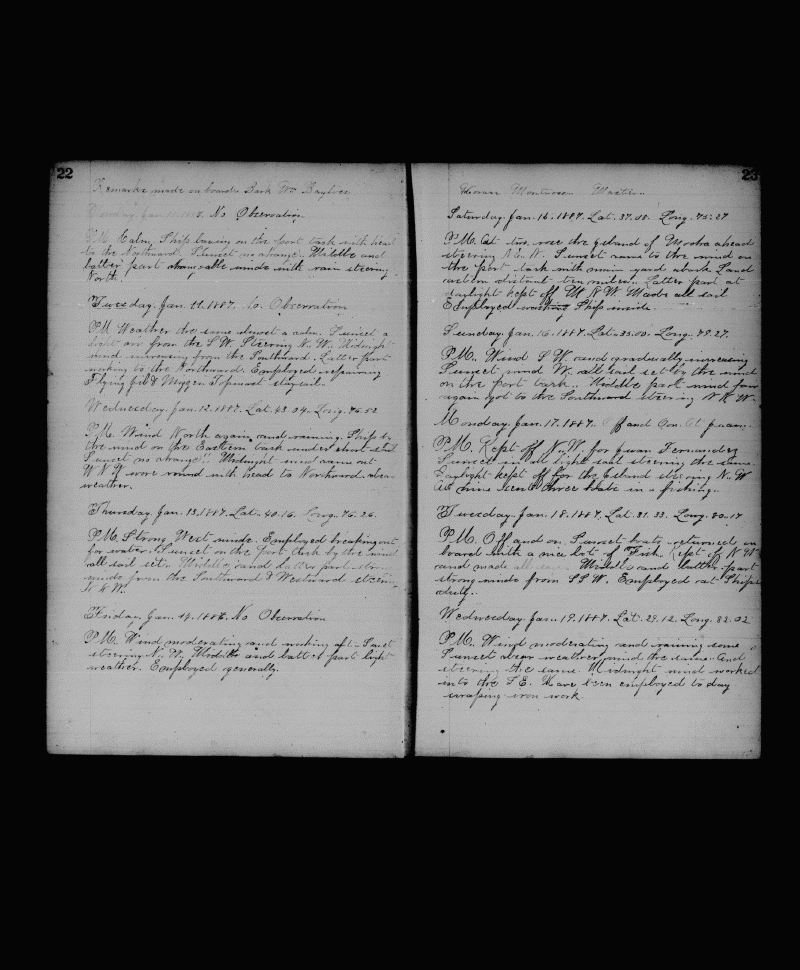 22
Remarks made on board Bark Wm Baylies
Monday. Jan. 10. 1887. No Observation
P.M. Calm, Ship laying on the port tack with head
to the Northward. Sunset no change. Middle and
latter part changeable winds with rain steering
North.
Tuesday. Jan. 11. 1887. No. Observation
P.M. Weather the same almost a calm. Sunset a
light air from the S.W. Steering N.W. Midnight
wind increasing from the Southward. Latter part
working to the Northward. Employed repairing
Flying jib & Myzzen Topmast staysail.
Wednesday. Jan. 12. 1887. Lat. 43.04. Long. 76.52
P.M. Wind North again and raining. Ship by
the wind on the Eastern tack under short sail
Sunset no change. Midnight wind came out
W.N.W wore round with head to Northward. clear
weather.
Thursday. Jan. 13. 1887. Lat. 40.16. Long. 76.26.
P.M. Strong West winds. Employed breaking out
for water. Sunset on the port tack by the wind
all sail set. Middle and latter part
winds from the Southward & Westward steering
N.N.W.
Friday. Jan. 14. 1887. No Observation
P.M. Wind moderating and working aft. Sunset
steering N.W. Middle and latter part light
weather. Employed generally.
23
Master
Saturday. Jan. 15. 1887. Lat. 37.48. Long. 75.27
P.M. At two, rose the Island of Mocha ahead
steering N.E. Sunset came to the wind on
the port tack with main yard aback. Land
eastern distant ten miles. Latter part at
daylight kept off W.N.W. Made all sail
Employed washing Ship inside.
Sunday. Jan. 16. 1887. Lat. 35.00. Long. 79.27.
P.M. Wind S.W. and gradually increasing
Sunset wind W. all sail set by the wind
on the port tack. Middle part wind fair
again got to the Southward steering N.N.W.
Monday. Jan. 17. 1887. Off and On. At Juan.
P.M. Kept off N.W. for Juan Fernandez
Sunset in all light sail steering the same.
Daylight kept off for the Island steering N.W
At nine sent three boats in a fishing.
Tuesday. Jan. 18. 1887. Lat. 31. 33. Long. 80.14
P.M. Off and on. Sunset boats returned on
board with a nice lot of Fish. Kept off N.W
and made all sail Middle and latter part
strong winds from S.S.W. Employed at Ships
duty.
Wednesday. Jan. 19. 1887. Lat. 29.12. Long. 82.02
P.M. Wind moderating and raining some
Sunset clear weather, wind the same and
steering the same. Midnight wind worked
into the S.E. Have been employed to day
scraping iron work.